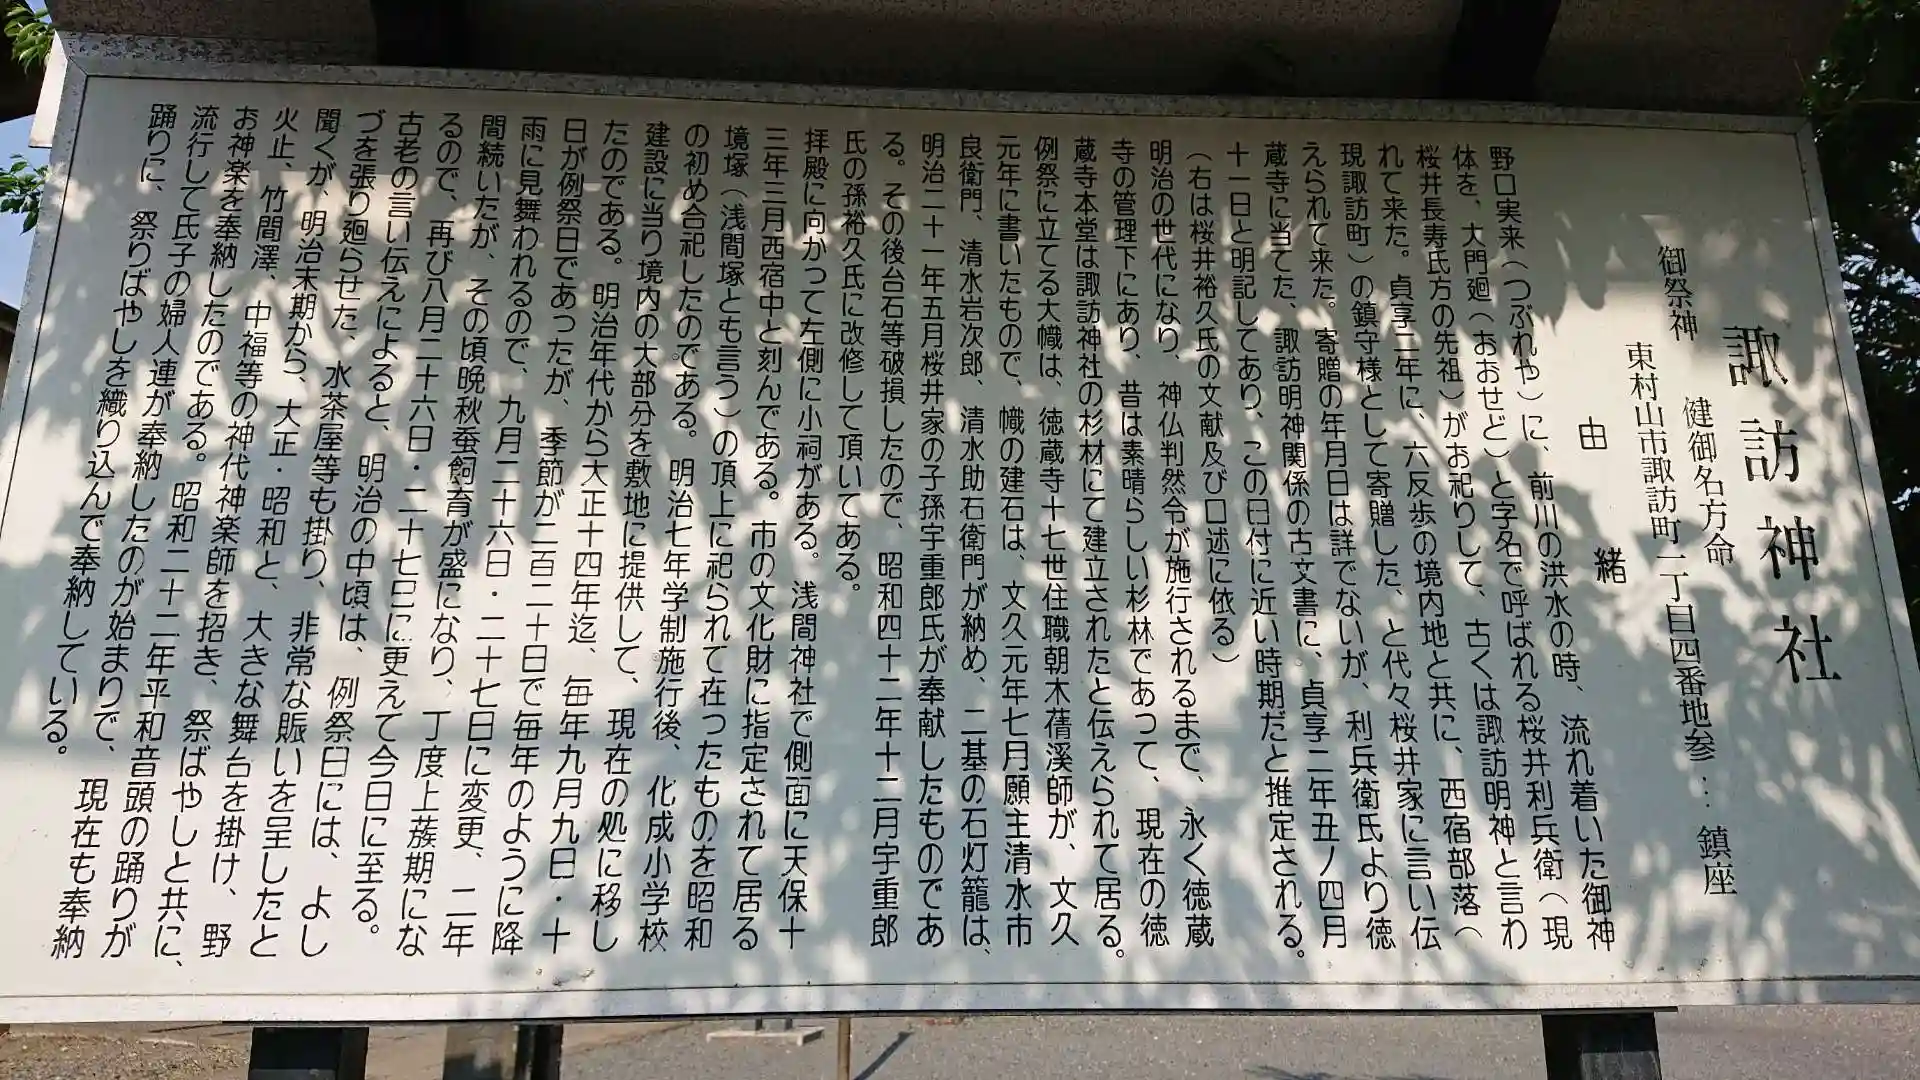 諏訪神社
御祭神　健御名方命
東村山市諏訪町一丁目四番地参…鎮座
由緒
野口実来（つぶれや）に、前川の洪水の時、流れ着いた御神
体を、大門廻（おおせど）と字名で呼ばれる桜井利兵衛（現
桜井長寿氏方の先祖）がお祀りして、古くは諏訪明神と言わ
れて来た。貞享二年に、六反歩の境内地と共に、西宿部落（
現諏訪町）の鎮守様として寄贈した、と代々桜井家に言い伝
えられて来た。寄贈の年月日は詳でないが、利兵衛氏より徳
蔵寺に当てた、諏訪明神関係の古文書に、貞享二年丑ノ四月
十一日と明記してあり、この日付に近い時期だと推定される。
（右は桜井裕久氏の文献及び口述に依る）
明治の世代になり、神仏判然令が施行されるまで、永く徳蔵
寺の管理下にあり、昔は素晴らしい杉林であって、現在の徳
蔵寺本堂は諏訪神社の杉材にて建立されたと伝えられて居る。
例祭に立てる大幟は、徳蔵寺十七世住職朝木蒨溪師が、文久
元年に書いたもので、幟の建石は、文久元年七月願主清水市
良衛門、清水岩次郎、清水助右衛門が納め、二基の石灯籠は、
明治二十一年五月桜井家の子孫宇重郎氏が奉献したものであ
る。その後台石等破損したので、昭和四十二年十二月宇重郎
氏の孫裕久氏に改修して頂いてある。
拝殿に向かって左側に小祠がある。浅間神社で側面に天保十
三年三月西宿中と刻んである。市の文化財に指定されて居る
境塚（浅間塚とも言う）の頂上に祀られて在ったものを昭和
の初め合祀したのである。明治七年学制施行後、化成小学校
建設に当り境内の大部分を敷地に提供して、現在の処に移し
たのである。明治年代から大正十四年迄、毎年九月九日・十
日が例祭日であったが、季節が二百二十日で毎年のように降
雨に見舞われるので、九月二十六日・二十七日に変更、二年
間続いたが、その頃晩秋蚕飼育が盛になり、丁度上蔟期にな
るので、再び八月二十六日・二十七日に更えて今日に至る。
古老の言い伝えによると、明治の中頃は、例祭日には、よし
づを張り廻らせた、水茶屋等も掛り、非常な賑いを呈したと
聞くが、明治末期から、大正・昭和と、大きな舞台を掛け、野
火止、竹間澤、中福等の神代神楽師を招き、祭ばやしと共に、
お神楽を奉納したのである。昭和二十二年平和音頭の踊りが
流行して氏子の婦人連が奉納したのが始まりで、現在も奉納
踊りに、祭りばやしを織り込んで奉納している。